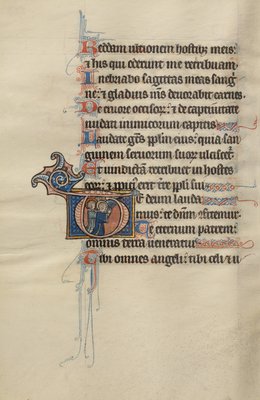 Reddam ultionem hostib; meis:
& his qui oderunt me retribuam.
Inebriabo sagittas meas sang
ne: & gladius m̄s deuorabit carnes.
De cruore occisor: & de captiuitate
nudati inimicorum capitis
Laudate gētes ppl'm eius: quia san
guinem seruorum suor ulciscet̄
Et uindictā retribuet in hostes
eor: & ppici' erit tr̄e ppl'i sui
Te deum lauda
mus: te dn̄m cōfitemur.
Te eternum patrem:
omnis terra ueneratur
Tibi omnes angeli: tibi celi & u